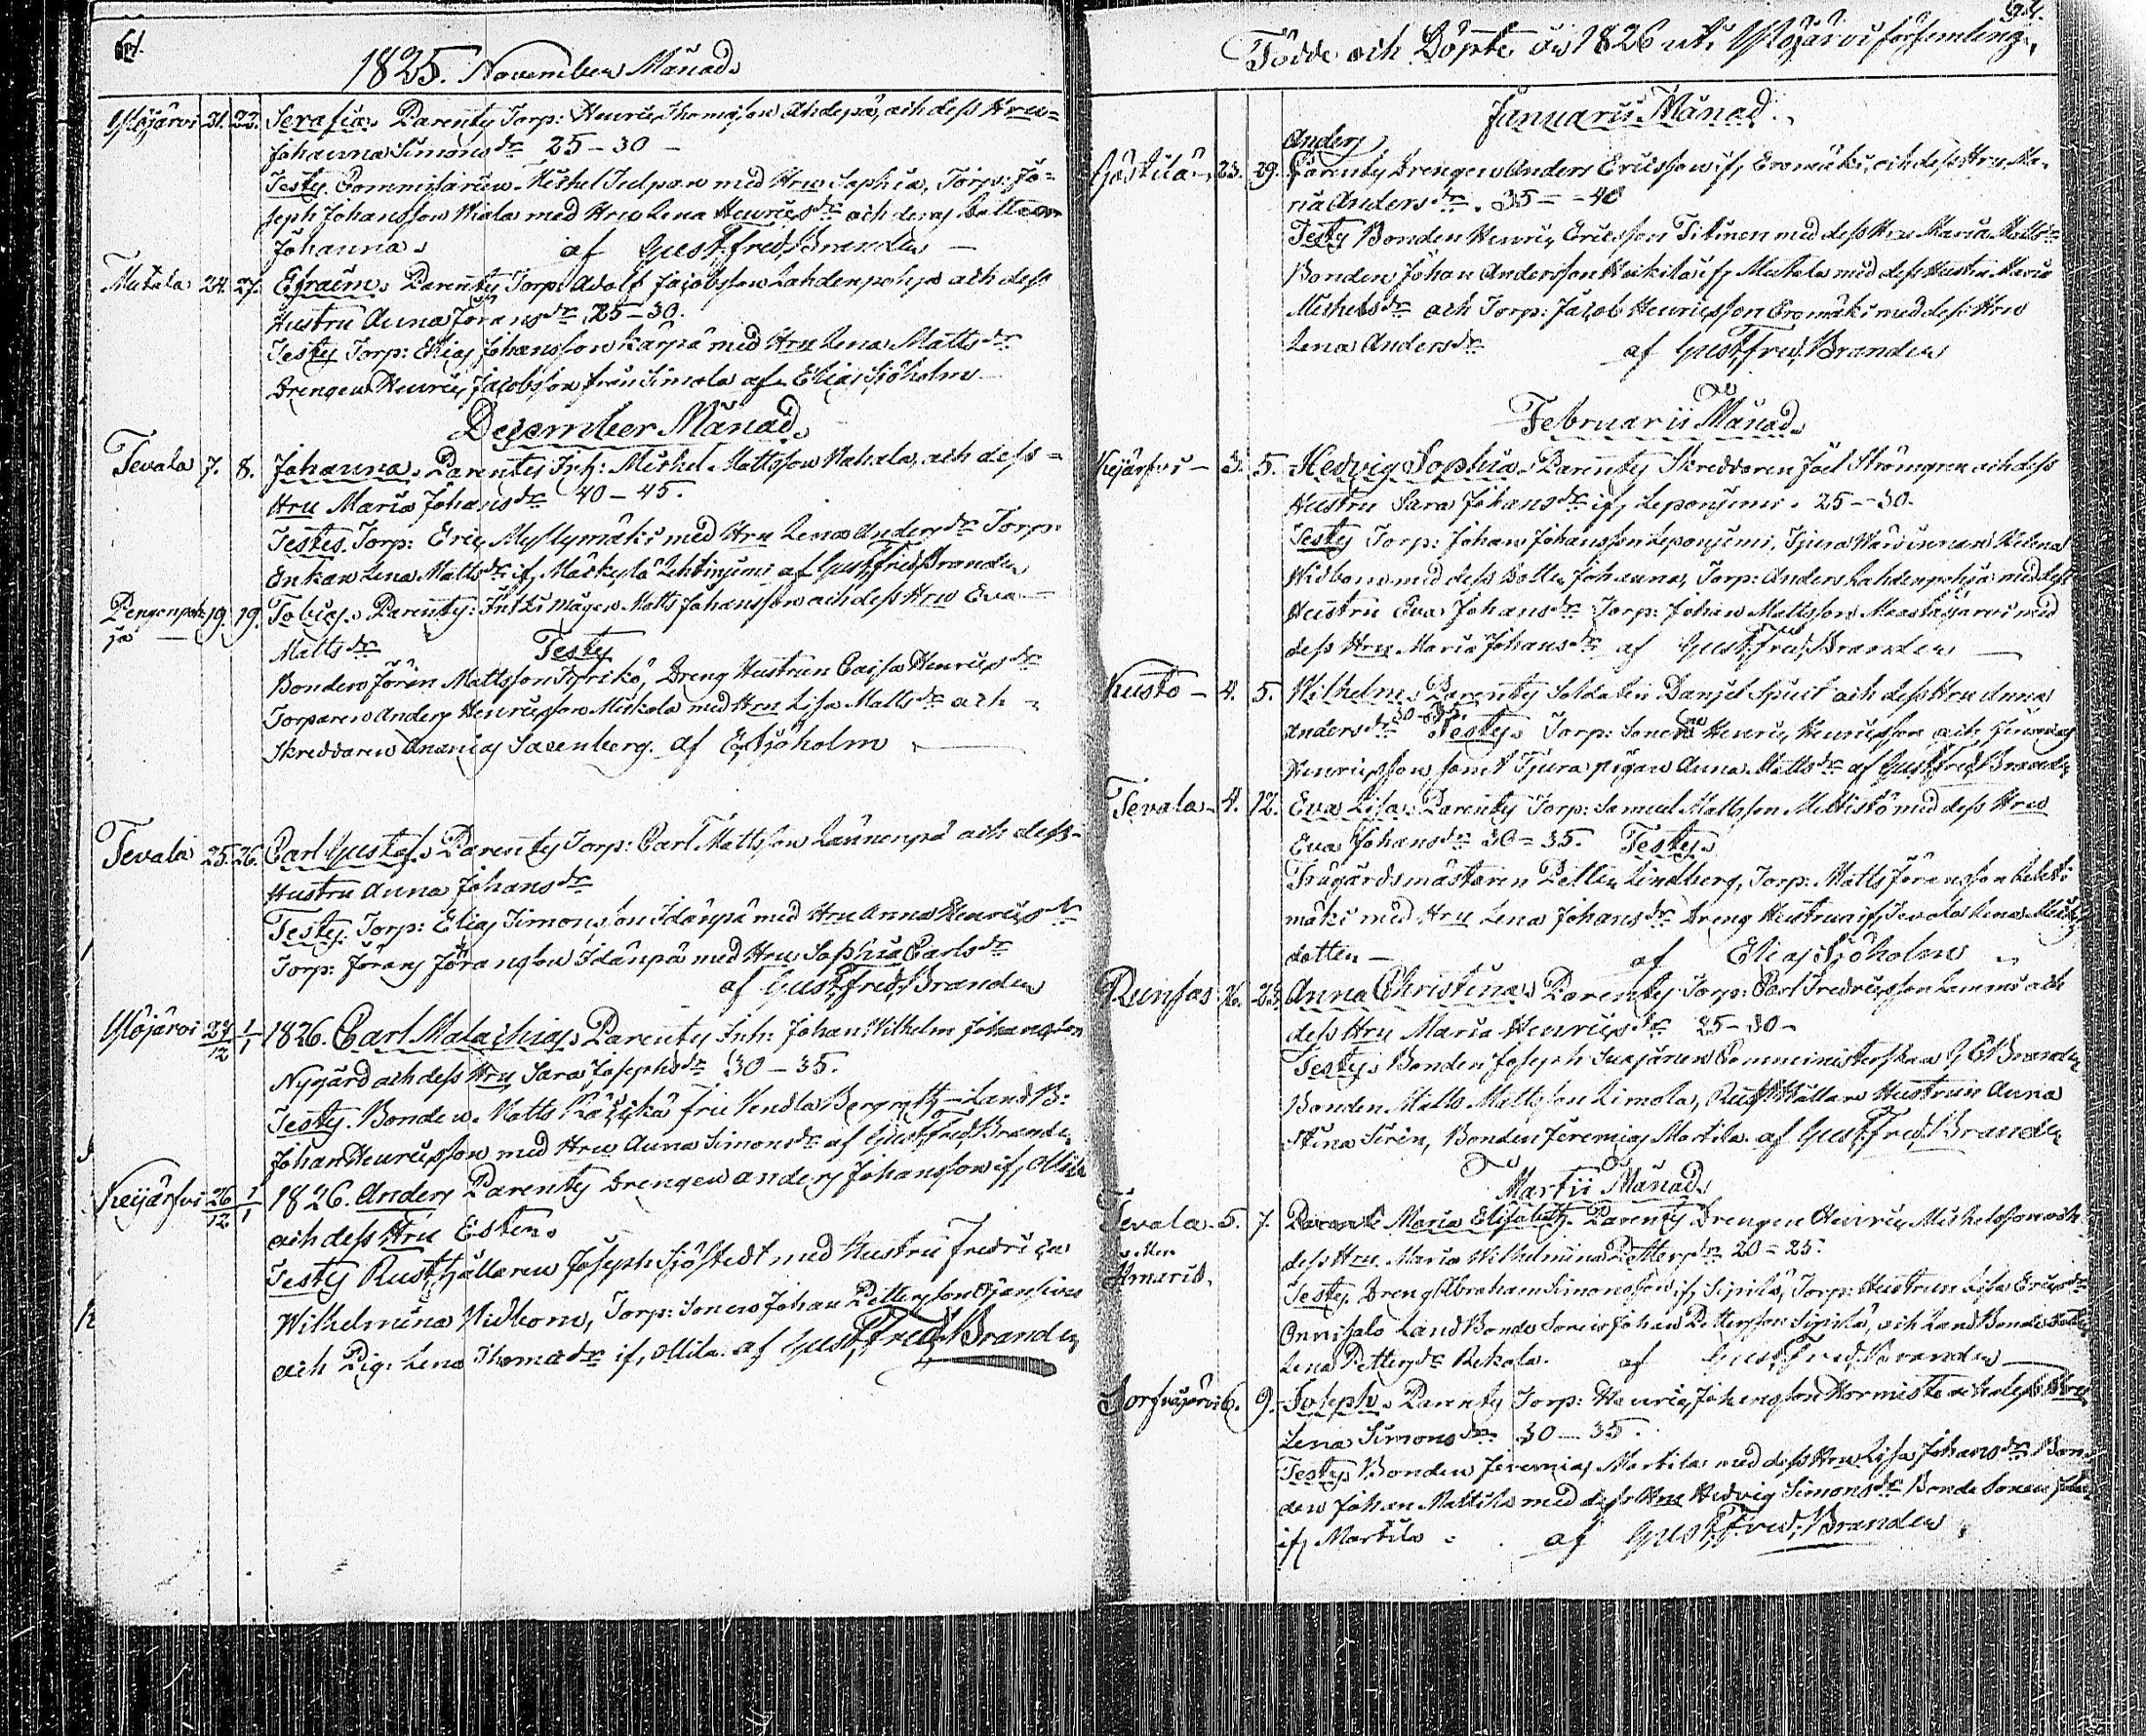 1825. November Månad
Ylöjärvi 21. 22. Serafia. Parentes Torp: Henric Thomasson Ahdepä, och dess Hru
Johanna Simonsdr 25–30 –
Testes. Commissarien Michel Tulpan med Hru Sophia, Torp: Jo=
seph Johansson Viola med Hru Lena Henricsdr och deras
Johanna. af Gust. Fred. Brander –
Mutala 24. 27. Efraim. Parentes Torp: Adolf Jacobsson Lahdenpohja och dess
Hustru Anna Jöransdr 25–30.
Testes Torp: Elias Johansson Kärpä med Hru Lena Mattsdr
Drengen Henric Jacobsson från Simola af Elias Sjöholm
December Månad
Tevala 7. 8. Johanna. Parentes Inh: Michel Mattsson Nahala, och dess =
Hru Maria Johansdr 40–45.
Testes. Torp: Eric Myllymäki med Hru Lena Andersdr Torp:
Enkan Lena Mattsdr if. Mäckylä Lehtinjemi af Gust. Fred. Brander
Pengonpoh= 19. 19. Tobias. Parentes: Inh: Mågen Matts Johansson och dess Hru Eva –
ja – Mattsdr Testes
Bonden Jören Mattsson Jyrikö, Dreng Hustrun Caisa Henricsdr
Torparen Anders Henricsson Miskola med Hru Lisa Mattsdr och
Skreddaren Ananias Saxenberg. af E. Sjöholm
Tevala 25. 26. Carl Gustaf. Parentes Torp: Carl Mattsson Lännenpä och dess
Hustru Anna Johansdr
Testes. Torp: Elias Simonsson Idänpä med Hru Anna Henricsdr
Torp: Jörans Jöransson Idänpä med Hru Sophia Carlsdr
af Gust. Fred. Brander
Ylöjärvi 27/12 1/1 1826. Carl Malachias. Parentes Inh: Johan Wilhelm Johansson
Nygård och dess Hru Sara Josephsdr 30–35.
Testes. Bonden Matts Räikkä fru Vendla Bergroth – Land B:
Johan Henricsson med Hru Anna Simonsdr af Gust. Fred. Brander
Keijärfvi 26/12 1/1 1826. Anders Parentes Drengen Anders Johansson if. Ollila
och dess Hru Ester.
Testes Rusthållaren Joseph Sjöstedt med Hustru Fredrica
Wilhelmina Widbom, Torp: Sonen Johan Pettersson Ojansivu
och Pig. Lena Thomasdr if. Ollila. af Gust. Fred. Brander
Födde och Döpte år 1826 uti Ylöjärvi församling.
Januarii Månad.
Anders
23. 29. Parentes Drengen Anders Ericsson if. Eromäki, och dess Hru Ma=
ria Andersdr. 35 = 40
Testes Bonden Henric Ericsson Tikinen med dess Hru Maria Mattsdr
Bonden Johan Andersson Keikilä if. Mutala med dess Hustru Maria
Michelsdr och Torp: Jacob Henricsson Eromäki med dess Hru
Lena Andersdr af Gust. Fred. Brander
Februarii Månad
Keijärfvi – 3. 5. Hedvig Sophia. Parentes Skreddaren Joel Strömgren och dess
Hustru Sara Johansdr if. Leponjemi. 25–30.
Testes Torp: Johan Johansson Leponjemi, Helena
Widbom med dess Dotter Johanna, Torp: Anders Lahdenpohja med dess
Hustru Eva Johansdr Torp: Johan Mattsson Maastojärvi med
dess Hru Maria Johansdr af Gust. Fred. Brander
Kusto – 4. 5. Wilhelm. Parentes Soldaten Daniel Spuit och dess Hru Anna
Andersdr 30–35. Testes. Torp: Sonen Henric Henricsson och
Henricsson samt Tjura pigan Anna Mattsdr af Gust. Fred. Brander
Tevala – 4. 12. Eva Lisa. Parentes Torp: Samuel Mattsson Mettistö med dess Hru
Eva Johansdr 30 = 35. Testes.
Trägårdsmästaren Petter Lindberg, Torp: Matts Jöransson
mäki med Hru Lena Johansdr Dreng Hustrun if. Tevala Lena Matts
dotter – af Elias Sjöholm
Runsas 26. 28. Anna Christina. Parentes Torp: Carl Fredricsson Lammi och
dess Hru Maria Henricsdr 25–30 –
Testes. Bonden Joseph Comministerskan G. C. Brander
Bonden Matts Mattsson Simola, Rusthållare Hustrun Anna
Stina Siren, Bonden Jeremias Martila af Gust. Fred. Brander
Martii Månad.
Tevala. 5. 7. Maria Elisabeth. Parentes Drengen Henric Michelsson och
dess Hru Maria Wilhelmina Pettersdr 20 = 25.
Testes. Dreng Abraham Simonsson if. Sipilä, Torp: Hustrun Lisa Ericsdr
Onnisalo Land Bonde Sonen Johan Pettersson Sipilä, och Land Bonde
Lena Pettersdr Rekola. af Gust. Fred. Brander
Sorfvajärvi 6. 9. Joseph. Parentes Torp: Henric Johansson Hormisto och dess Hru
Lena Simonsdr 30–35.
Testes Bonden Jeremias Martila med dess Hru Lisa Johansdr Bon=
den Johan Mattila med dess Hru Hedvig Simonsdr Bonde Sonen
if. Martila. af Gust. Fred. Brander